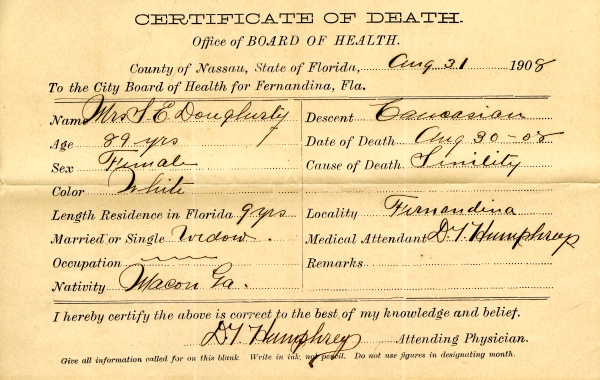 CERTIFICATE OF DEATH.
Office of BOARD OF HEALTH.
County of Nassau, State of Florida, Aug 31 1908
To the City Board of Health for Fernandina, Fla.
Name Mrs S. E. Dougherty
Age 89 yrs
Sex Female
Color White
Length Residence in Florida 9 yrs
Married or Single Widow.
Occupation
Nativity Macon Ga.
Descent Caucasian
Date of Death Aug 30-08
Cause of Death Senility
Locality Fernandina
Medical Attendant D. T. Humphrey
Remarks
I hereby certify the above is correct to the best of my knowledge and belief.
D T Humphrey Attending Physician.
Give all information called for on this blank. Write in ink, not pencil. Do not use figures in designating month.